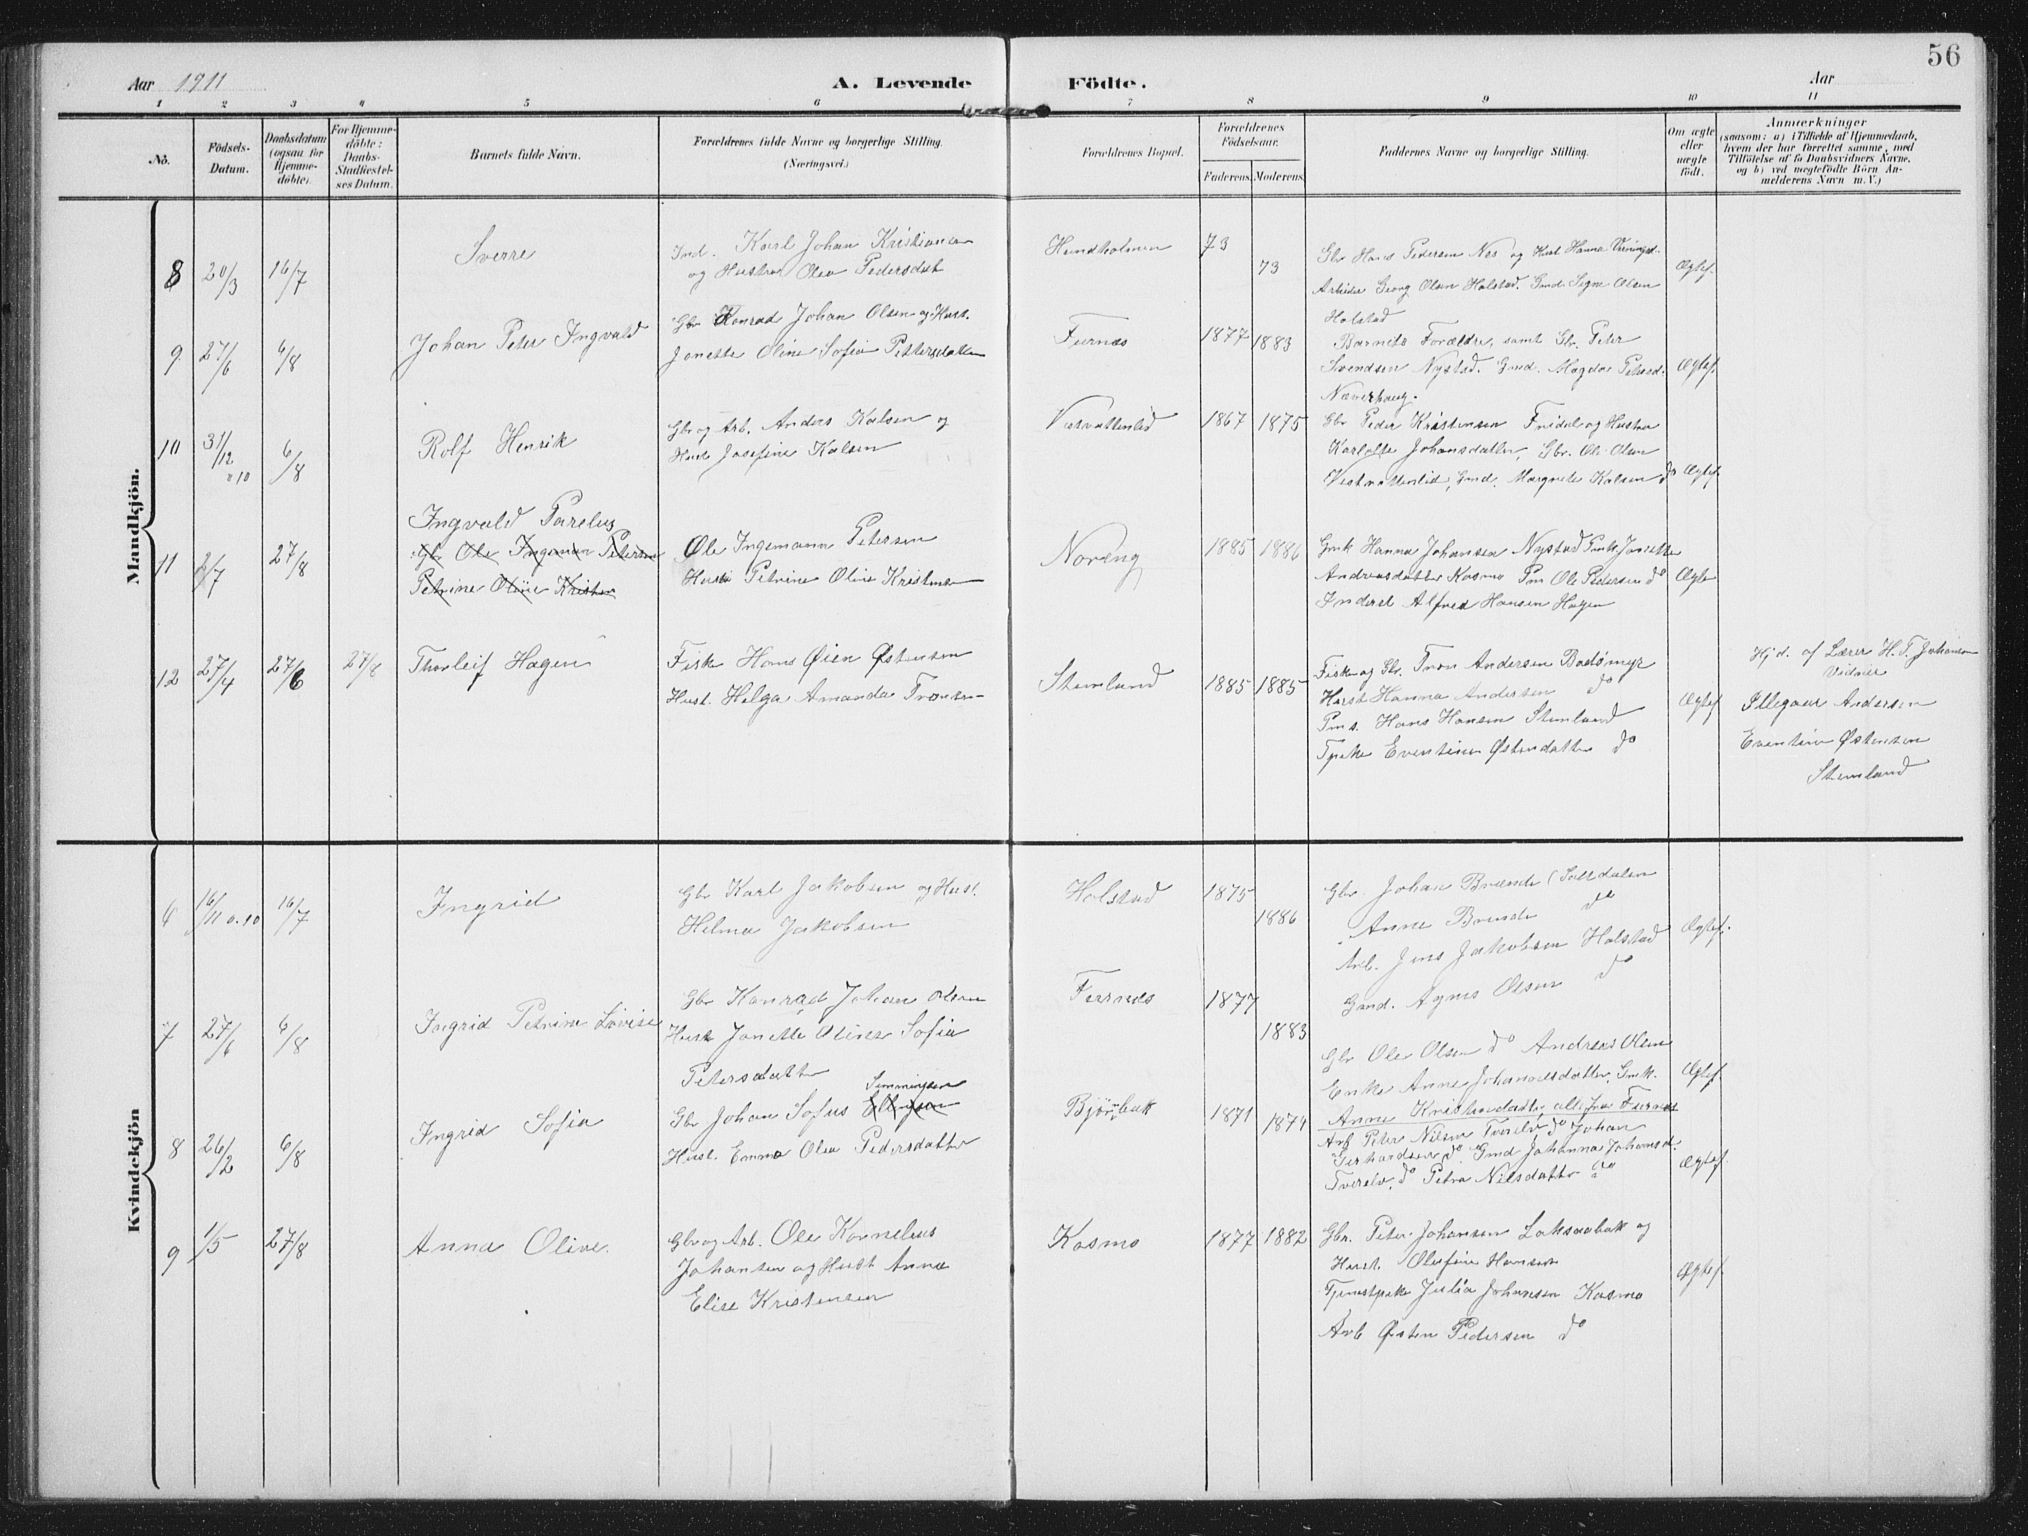 56
Aar 1911
A. Levende
Födte.
Aar
1 2 3 4 5 6 7 8 9 10 11
No.
Födsels-
Datum.
Daabsdatum
(ogsaa for
Hjemme-
döbte).
For Hjemme-
döbte:
Daabs-
Stadfæstel-
ses Datum.
Barnets fulde Navn.
Forældrenes fulde Navne og borgerlige Stilling.
(Næringsvei.)
Forældrenes Bopæl.
Forældrenes
Födselsaar.
Faderens. Moderens.
Faddernes Navne og borgerlige Stilling.
Om ægte
eller
uægte
födt.
Anmærkninger
(saasom: a) i Tilfælde af Hjemmedaab,
hvem der har forrettet samme, med
Tilföielse af to Daabsvidners Navne,
og b) ved uægtefödte Börn An-
melderens Navn m. V.)
Mandkjön.
8 20/3 16/7
Sverre
Ind. Karl Johan Kristiansen
og Hustru Olea Pedersdat
Hundholmen
73
73
Gbr Hans Pedersen Nes og Hust Hanna
Arbeider Georg Olsen Holstad. Gmd. Signe Olsen
Holstad
Ægtef.
9 27/6 6/8
Johan Peter Ingvald
Gbr Konrad Johan Olsen og Hust.
Jonette Oline Sofia Pettersdatter
Furnes
1877 1883
Barnets Forældre, samt Gbr. Peter
Svendsen Nystad. Gmd. Magda Petersd.
Næverhaug.
Ægtef.
10 31/12 "10 6/8
Rolf Henrik
Gbr og Arb. Anders Kalsen og
Hust Josefine Kalsen
Vestvattenlid
1867 1875
Gbr Peder Kristensen Fridal og Hustru
Karlotte Johansdatter, Gbr. Ole Olsen
Vestvattenlid, Gmd. Margrete Kalsen do
Ægtef.
11 2/7 27/8
Ingvald Parelius
Gbr Ole Ingeman Petersen
Petrine Oline Kristen
Ole Ingemann Petersen
Hust Petrine Oline Kristensen
Noreng
1885 1886
Gmk Hanna Johansen Nystad Pmk Jonette
Andreasdatter Kosmo Pm Ole Pedersen do
Inderst Alfred Hansen Hagen
Ægte
12 27/4 27/6 27/8
Thorleif Hagen
Fisk Hans Øien Østensen
Hust. Helga Amanda
Stemland
1885 1885
Fisk og Gbr. Tron Andersen Badsmyr
Hust Hanna Andersen do
Pms. Hans Hansen Stemland
Tpike Eventine Østensdatter do
Ægtef
Hjd. af Lærer H. T. Johansen
Vidner
Andersen
Eventine Østensen
Stemland
Kvindekjön
6 16/11 a.10 16/7
Ingrid
Gbr Karl Jakobsen og Hust.
Helma Jakobsen
Holstad
1875
1886
Gbr. Johan Brænde (Saltdalen
Anne Brende do
Arb. Jens Jakobsen Holstad
Gmd. Agnes Olsen do
Ægtef.
7 27/6 6/8
Ingrid Petrine Lovise
Gbr Konrad Johan Olsen
Hust Jonette Oline Sofia
Petersdatter
Furnes
1877
1883
Gbr Ole Olsen do Andreas Olsen
Enke Anne Johannesdatter, Gmk.
Anne Kristensdatter, alle fra Furnes
Ægtef.
8 26/2 6/8
Ingrid Sofia
Simmingsen
Gbr Johan Sofus Ellingsen
Hust. Emma Olea Pedersdatter
Bjørnbak
1871 1874
Arb Peter Nilsen Tverelv do Johan
Gerhardsen do Gmd Johanna Johansd.
Tverelv, do Petra Nilsdatter do
Ægtef.
9 1/5 27/8
Anna Oline.
Gbr og Arb. Ole Kornelius
Johansen og Hust Anna
Elise Kristensen
Kosmo
1877 1882
Gbr. Peter Johansen Laksaabak og
Hust. Olufine Hansen
Tjenestpike Julia Johansen Kosmo
Arb Østen Pedersen do
Ægtef.